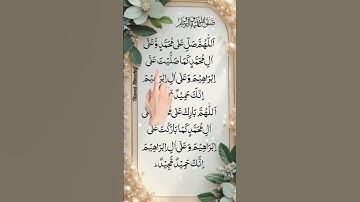 اَللّٰهُمَّ صَلِّ عَلٰى مُحَمَّدٍ وَّعَلٰى
اٰلِ مُحَمَّدٍ كَمَا صَلَّيْتَ عَلٰى
اِبْرَاهِيْمَ وَعَلٰى اٰلِ اِبْرَاهِيْمَ
اِنَّكَ حَمِيْدٌ
اَللّٰهُمَّ بَارِكْ عَلٰى
اٰلِ مُحَمَّدٍ كَمَا بَارَكْتَ عَلٰى
اِبْرَاهِيْمَ وَعَلٰى اٰلِ اِبْرَاهِيْمَ
اِنَّكَ حَمِيْدٌ مَّجِيْدٌ